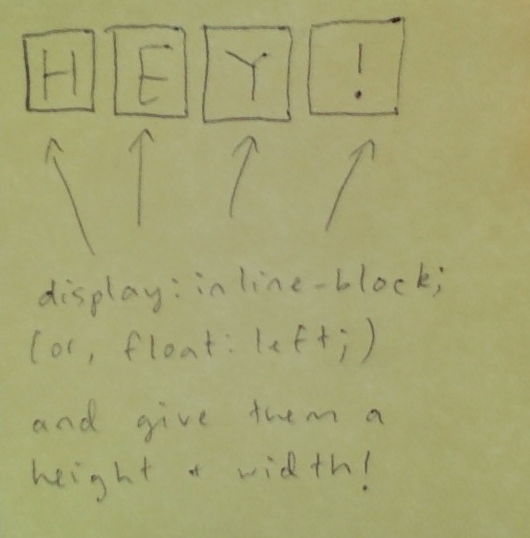 H E Y !
display: inline-block;
(or, float: left;)
and give them a
height + width!